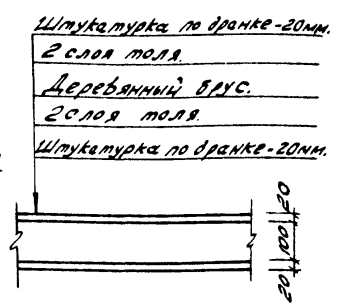 Штукатурка по дранке-20мм.
2 слоя толя.
Деревянный брус.
2 слоя толя.
Штукатурка по дранке-20мм.
20
100
20